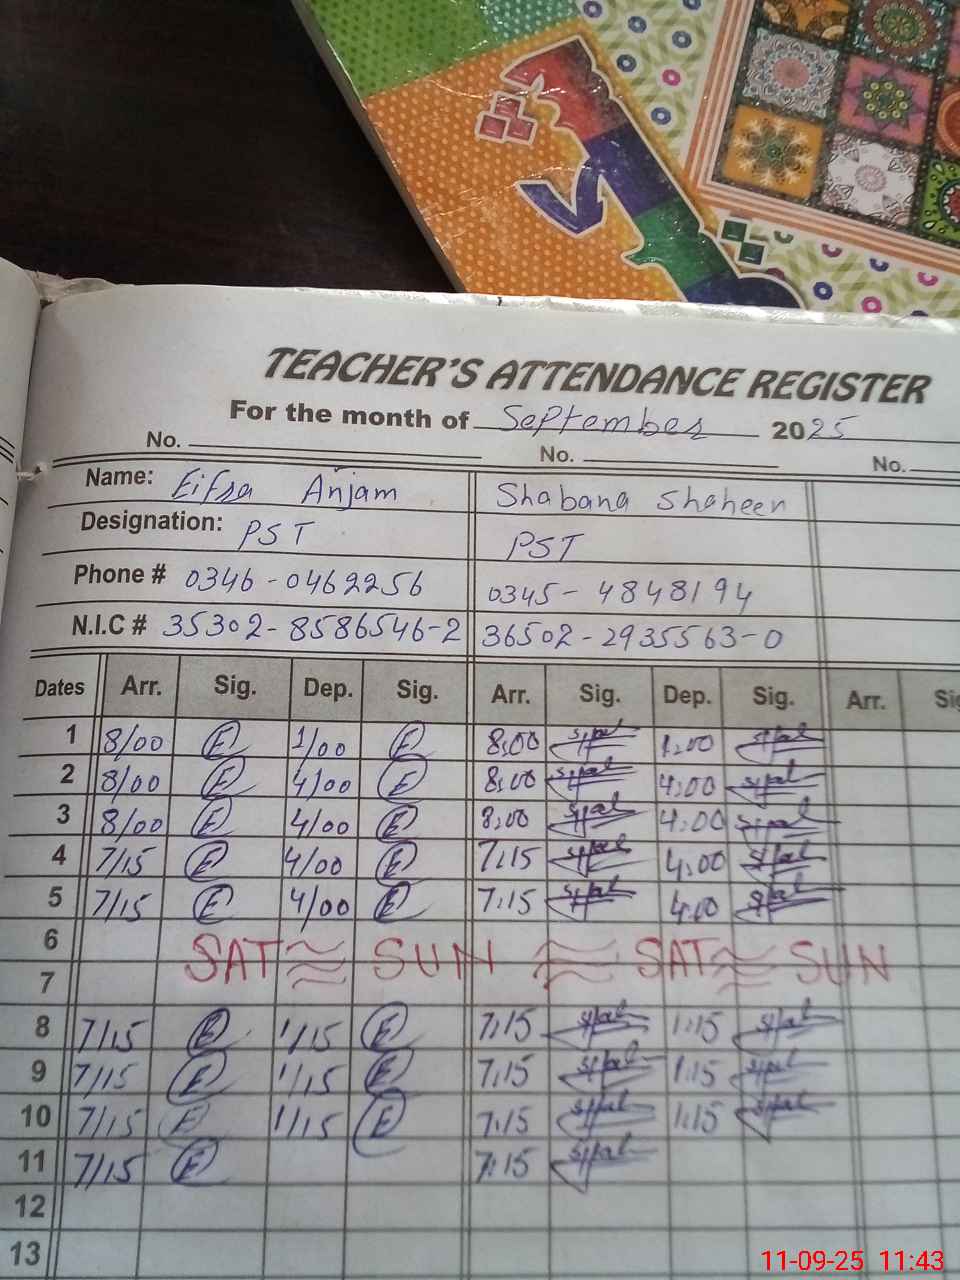 TEACHER'S ATTENDANCE REGISTER
For the month of September 2025
No. No. No.
Name: Eifra Anjam Shabana Shaheen
Designation: PST PST
Phone # 0346-0462256 0345-4848194
N.I.C # 35302-8586546-2 36502-2935563-0
Dates Arr. Sig. Dep. Sig. Arr. Sig. Dep. Sig. Arr. Sig
1 8/00 E 1/00 E 8:00 1:00
2 8/00 E 4/00 E 8:00 4:00
3 8/00 E 4/00 E 8:00 4:00
4 7/15 E 4/00 E 7:15 4:00
5 7/15 E 4/00 E 7:15 4:00
6 SAT SUN SAT SUN
7
8 7/15 E 1/15 E 7:15 1:15
9 7/15 E 1/15 E 7:15 1:15
10 7/15 E 1/15 E 7:15 1:15
11 7/15 E 7:15
12
13
11-09-25 11:43